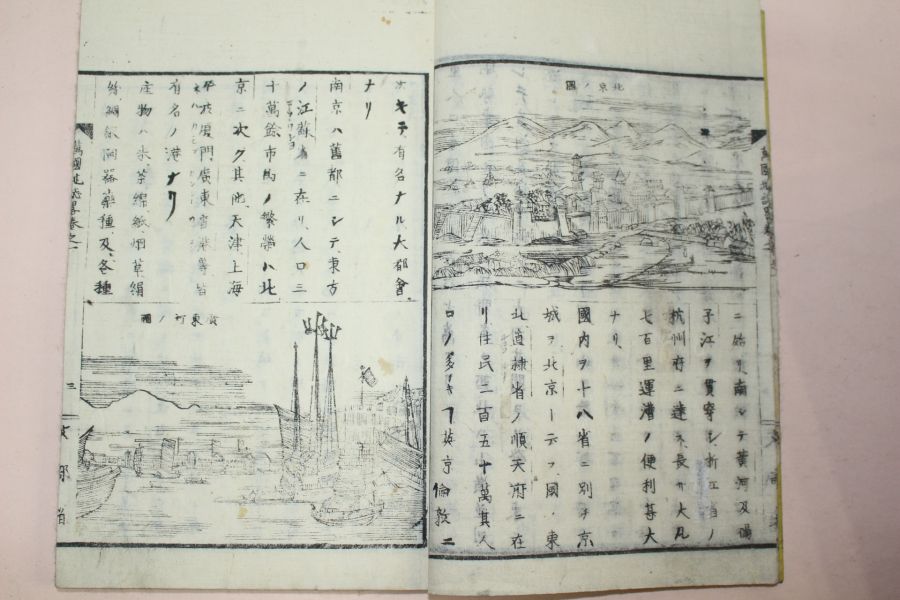 北京ノ圖
ニ始リ南シテ黄河及揚
子江ヲ貫穿シ浙江省ノ
杭州府ニ達ス長サ大凡
七百里運漕ノ便利甚大
ナリ
國内ヲ十八省ニ別チ京
城ヲ北京ト云フ國ノ東
北直隷省ノ順天府ニ在
リ住民二百五十萬其人
口ノ多キヿ英京倫敦ニ
次キテ有名ナル大都會
ナリ
南京ハ舊都ニシテ東方
ノ江蘇省ニ在リ人口三
十萬餘市馬ノ繁榮ハ北
京ニ次グ其他天津上海
寧波厦門廣東香港等皆
有名ノ港ナリ
産物ハ米茶綿紙烟草絹
絲綢緞陶器藥種及各種
廣東町ノ圖
萬國地誌畧卷之一
三
文部省